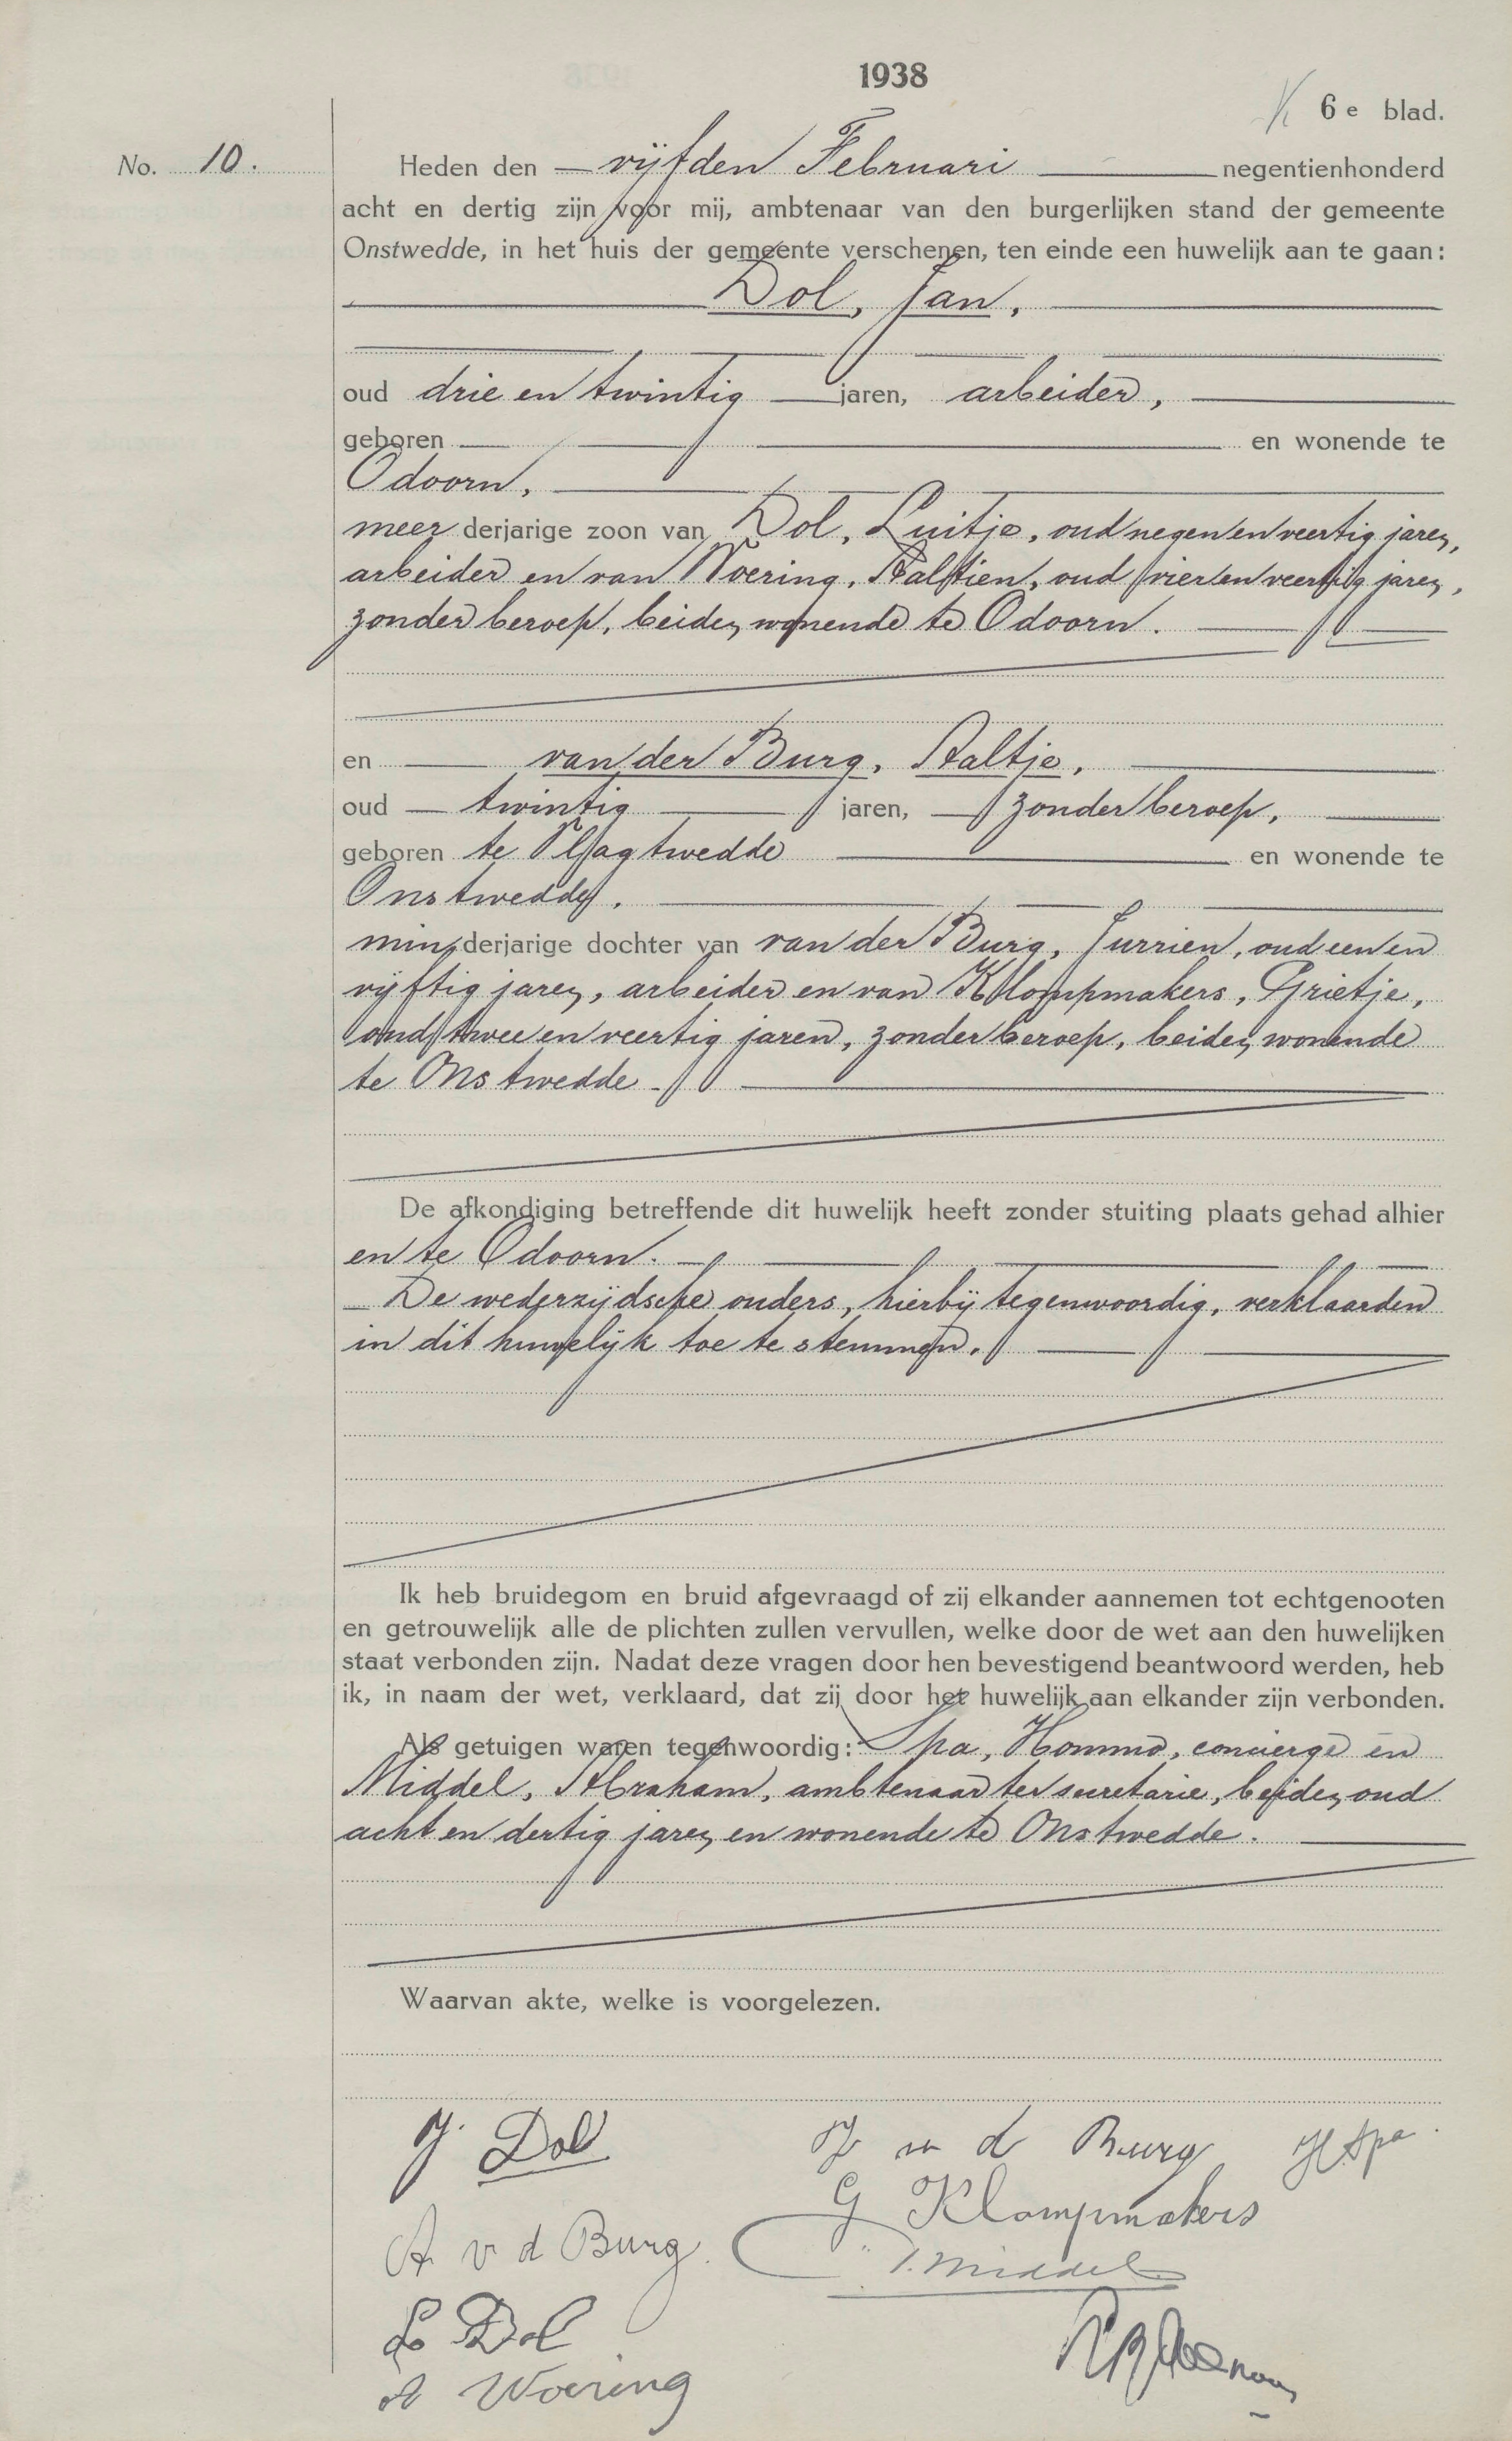 1938
6e blad.
No. 10.
Heden den vijfden Februari negentienhonderd
acht en dertig zijn voor mij, ambtenaar van den burgerlijken stand der gemeente
Onstwedde, in het huis der gemeente verschenen, ten einde een huwelijk aan te gaan:
Dol, Jan,
oud drie en twintig jaren, arbeider,
geboren en wonende te
Odoorn,
meerderjarige zoon van Dol, Luitje, oud negen en veertig jaren,
arbeider en van Woering, Aaltien, oud vier en veertig jaren,
zonder beroep, beiden wonende te Odoorn.
en van der Burg, Aaltje,
oud twintig jaren, zonder beroep,
geboren te Vlagtwedde en wonende te
Onstwedde,
minderjarige dochter van van der Burg, Jurrien, oud een en
vijftig jaren, arbeider en van Klompmakers, Grietje,
oud twee en veertig jaren, zonder beroep, beiden wonende
te Onstwedde.
De afkondiging betreffende dit huwelijk heeft zonder stuiting plaats gehad alhier
en te Odoorn.
De wederzijdsche ouders, hierbij tegenwoordig, verklaarden
in dit huwelijk toe te stemmen.
Ik heb bruidegom en bruid afgevraagd of zij elkander aannemen tot echtgenooten
en getrouwelijk alle de plichten zullen vervullen, welke door de wet aan den huwelijken
staat verbonden zijn. Nadat deze vragen door hen bevestigend beantwoord werden, heb
ik, in naam der wet, verklaard, dat zij door het huwelijk aan elkander zijn verbonden.
Als getuigen waren tegenwoordig: Spa, Hommo, concierge en
Middel, Abraham, ambtenaar ter secretarie, beiden oud
acht en dertig jaren en wonende te Onstwedde.
Waarvan akte, welke is voorgelezen.
J. Dol J v d Burg H Spa
G Klompmakers
A v d Burg Middel
L Dol
A Woering